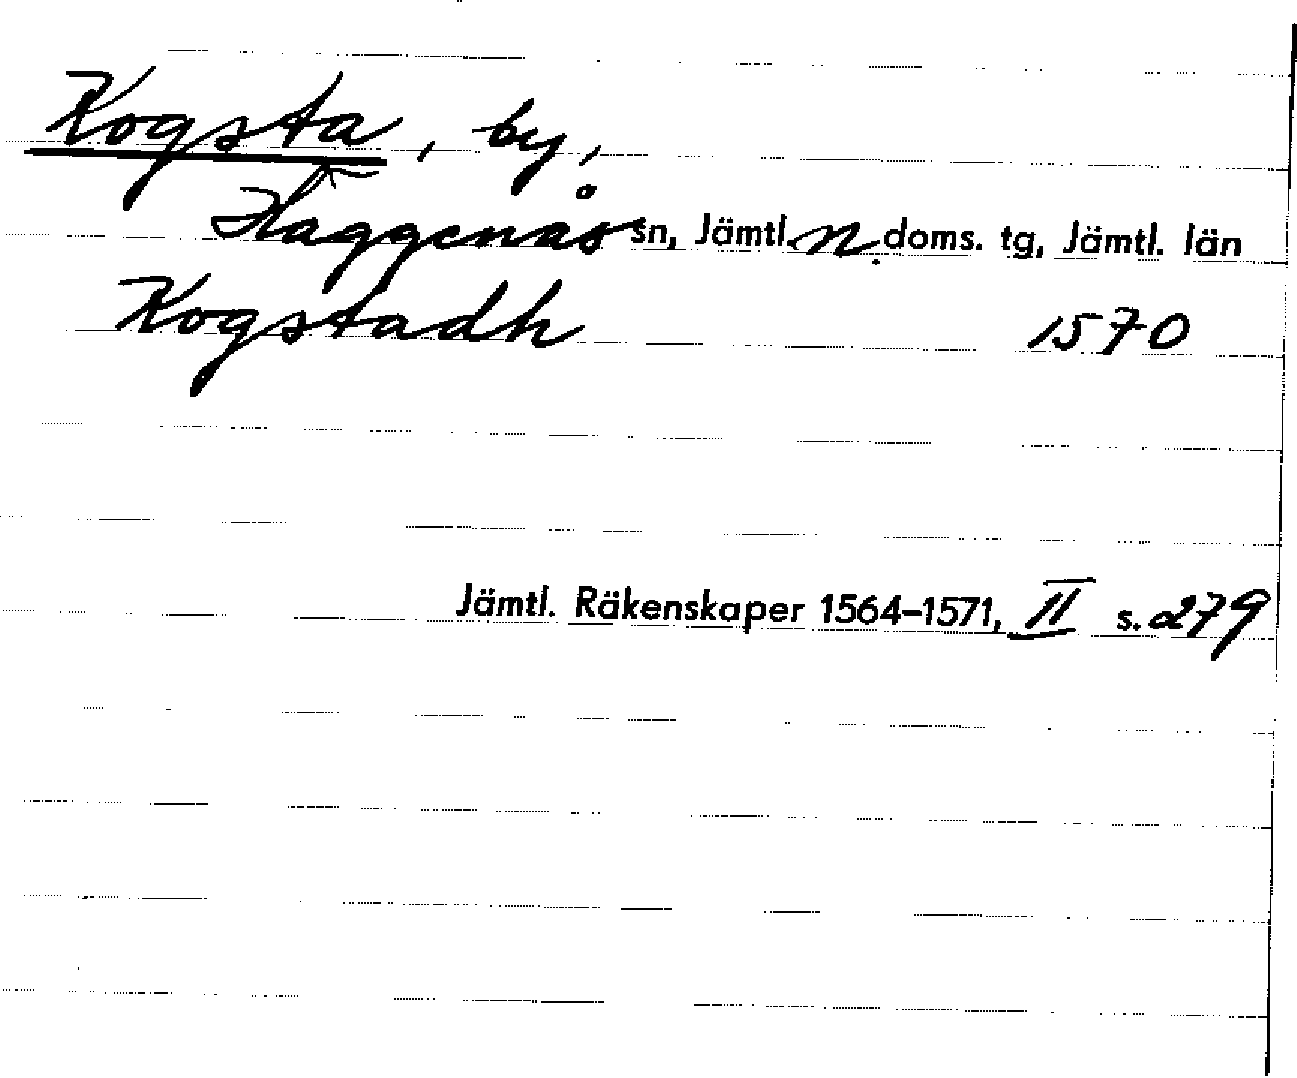 Kogsta, by,
Häggenås sn, Jämtl. n. doms. tg, Jämtl. län
Kogstadh 1570
Jämtl. Räkenskaper 1564-1571, II s. 279